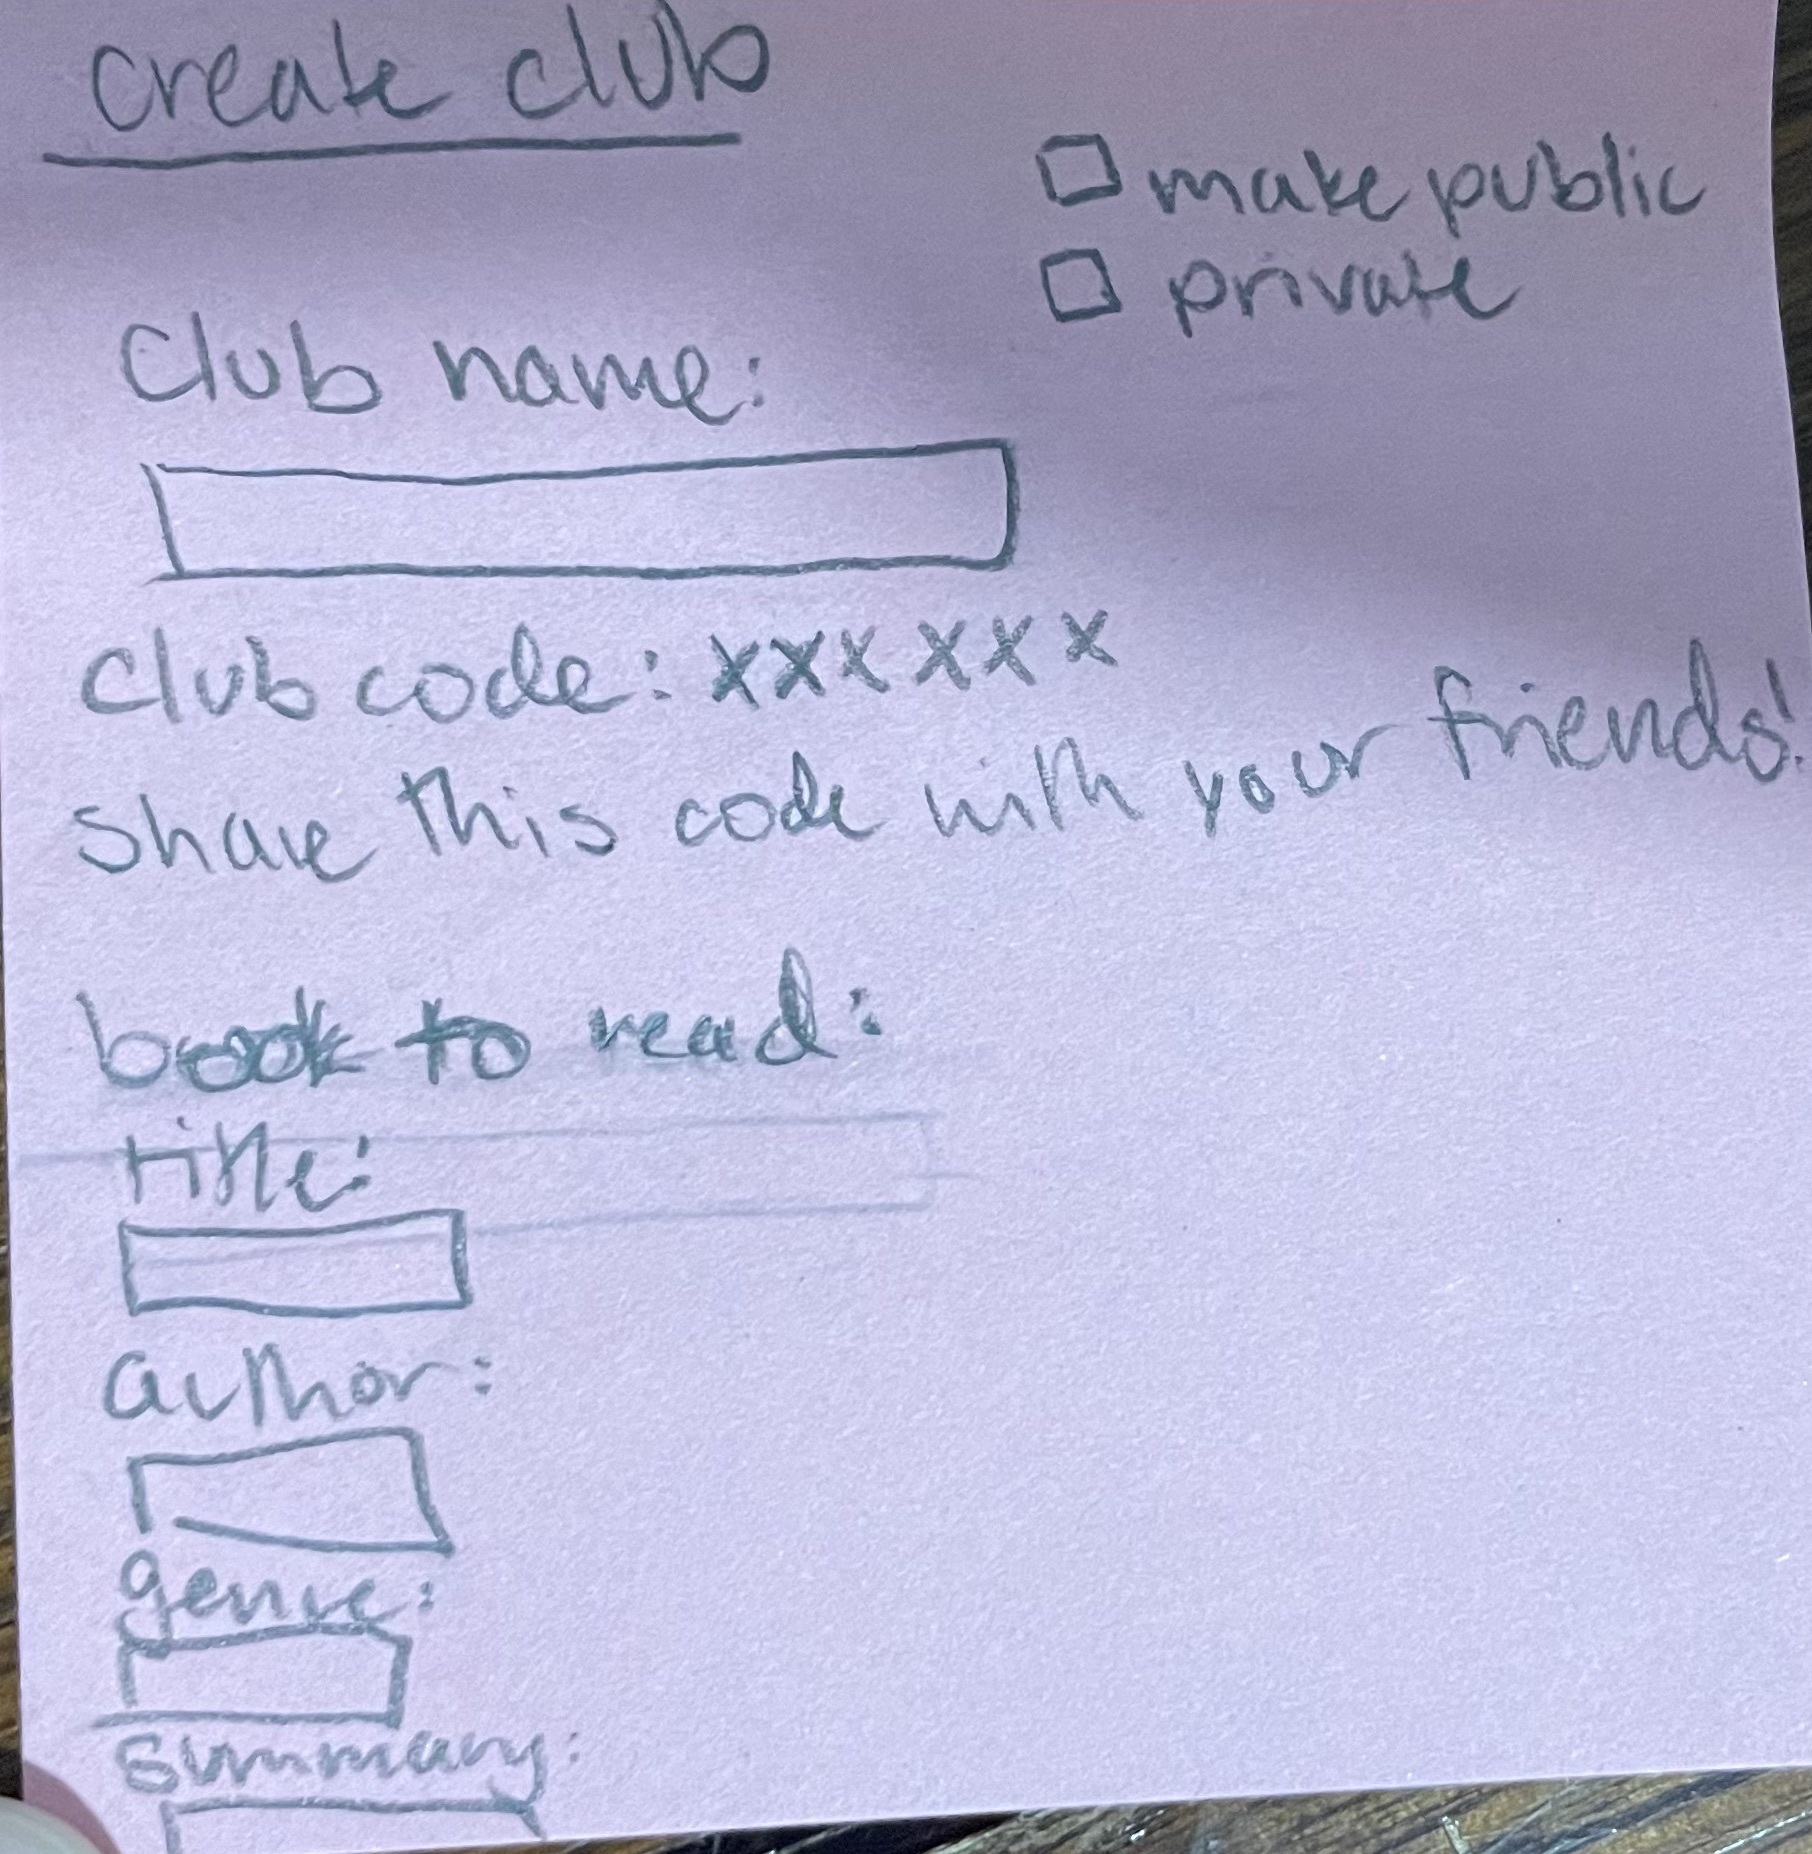 create club
make public
private
Club name:
club code: xxxxxx
share this code with your friends!
book to read:
title:
author:
genre:
summary: